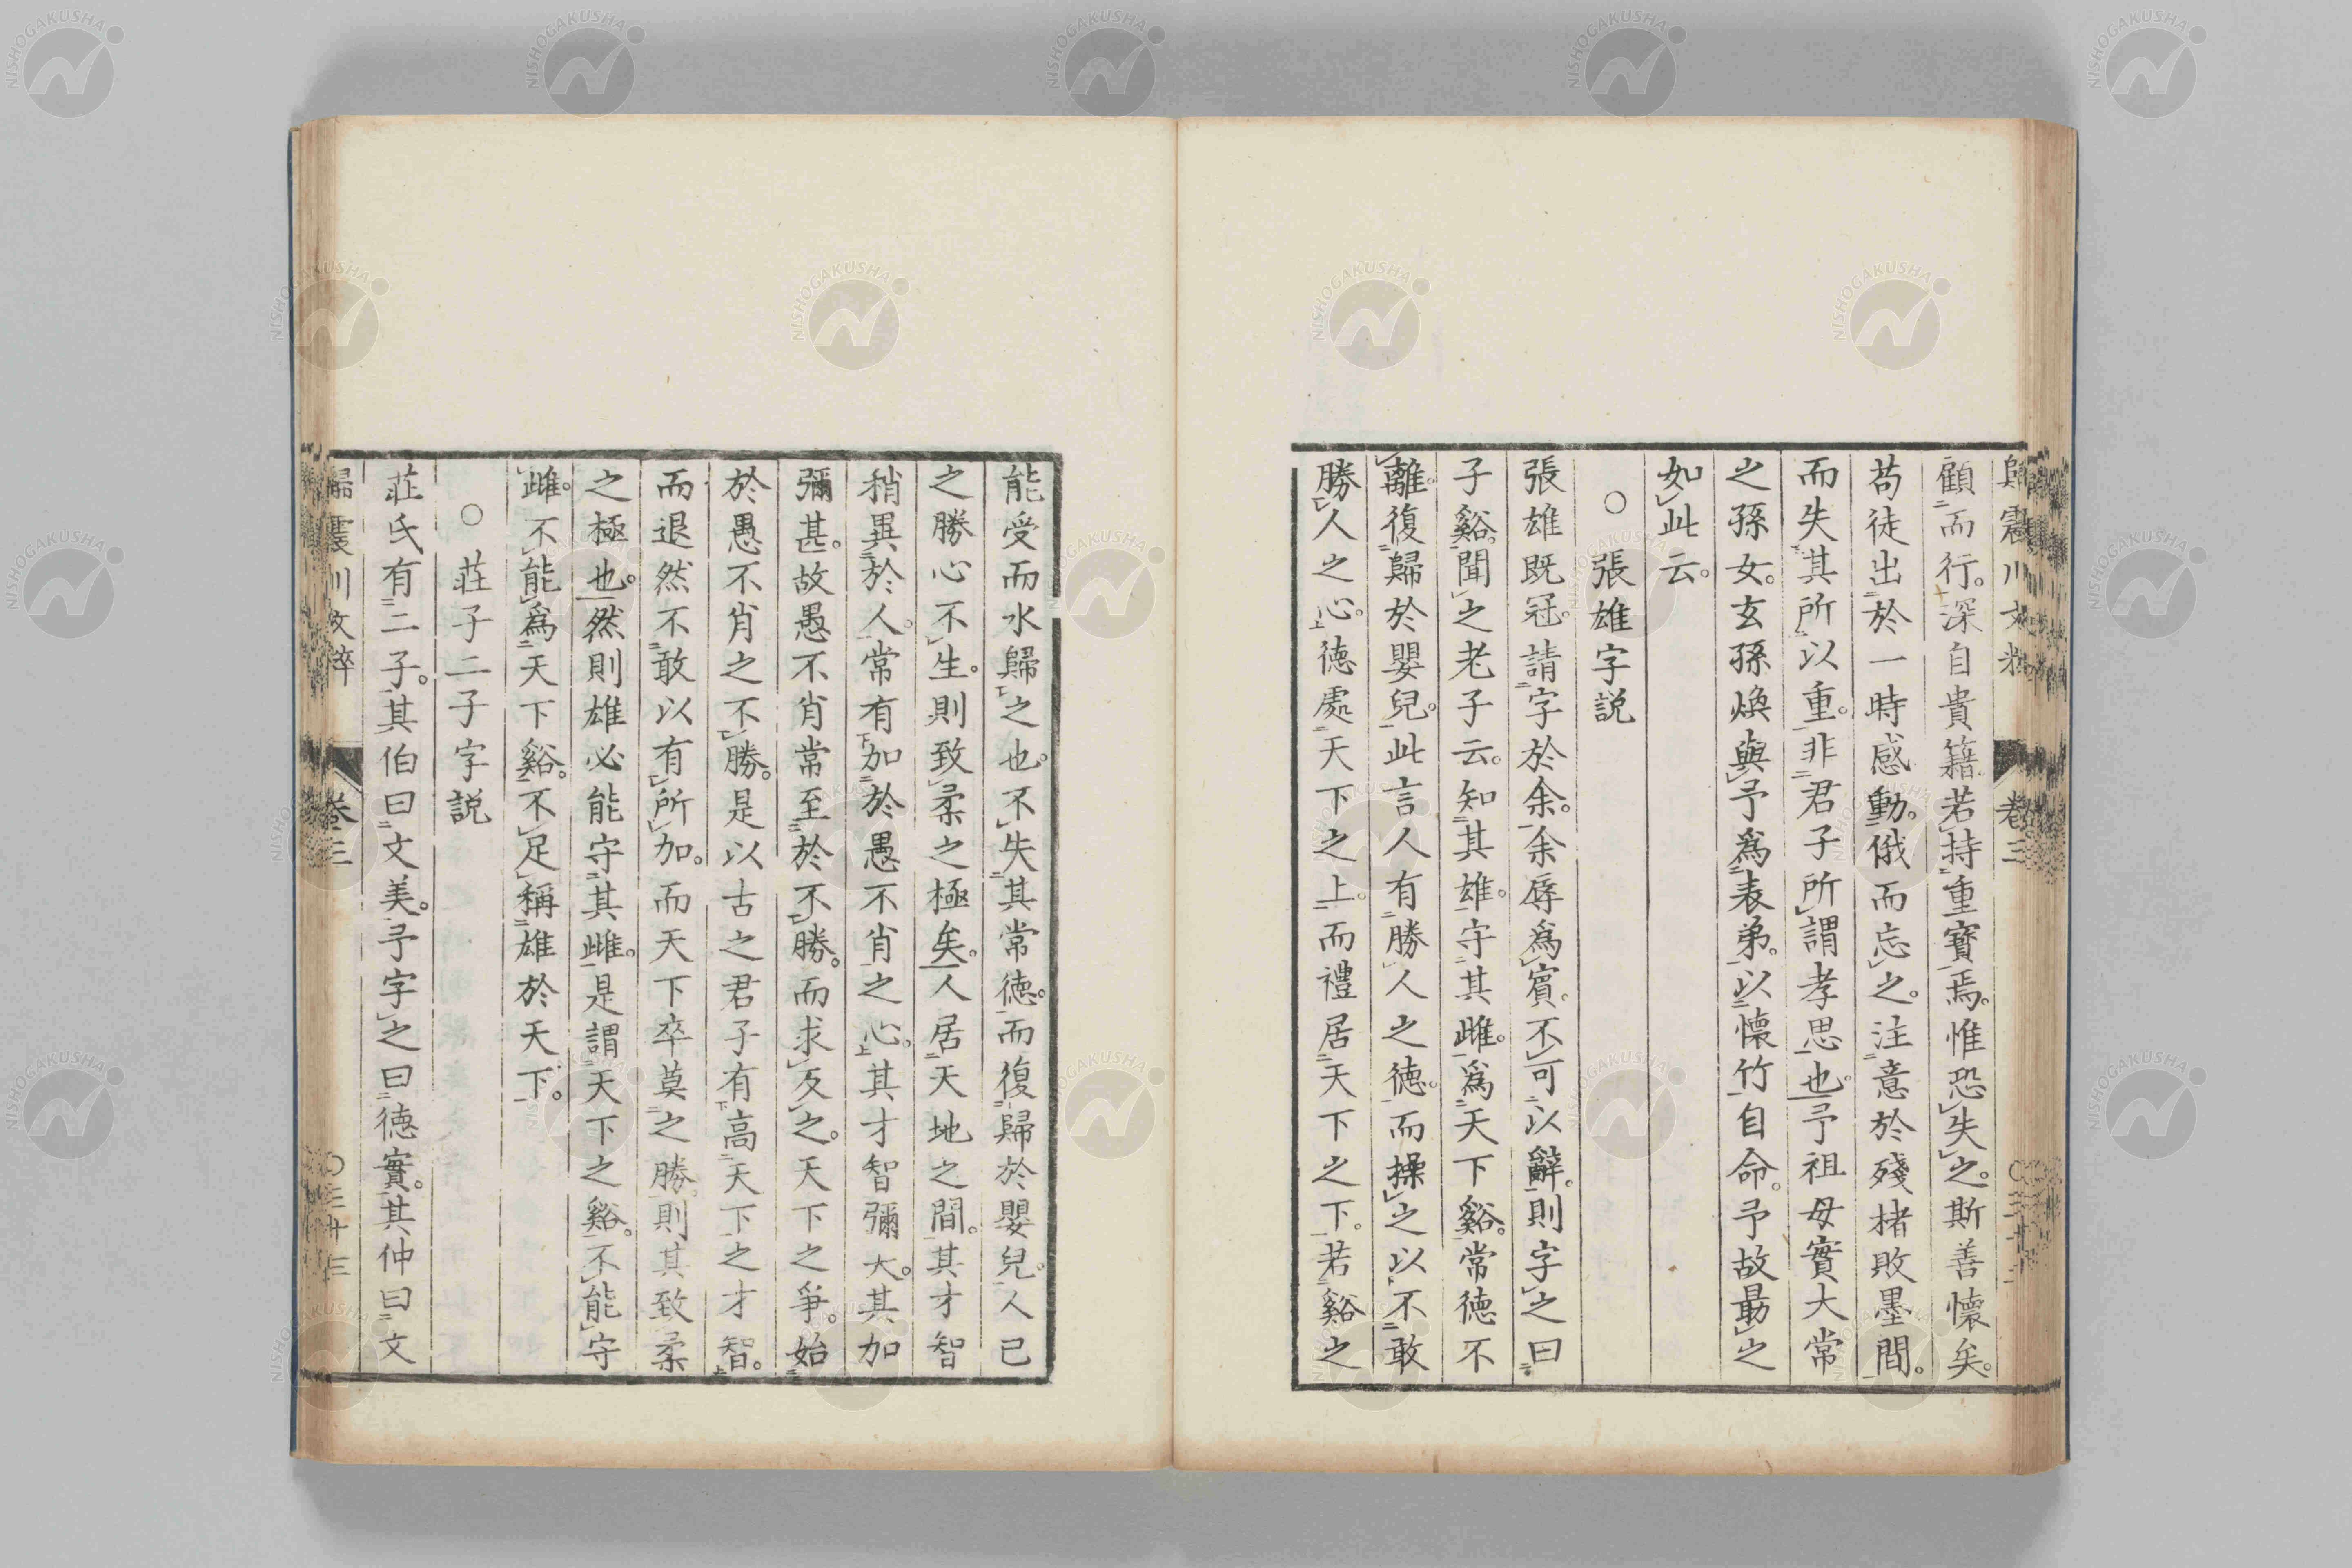 歸震川文粹　卷三
顧而行。深自貴籍。若持重寳焉。惟恐失之。斯善懷矣。
苟徒出於一時感動。俄而忘之。注意於殘楮敗墨間。
而失其所以重。非君子所謂孝思也。予祖母實大常
之孫女。玄孫煥與予爲表弟。以懷竹自命。予故最之
如此云。
○張雄字説
張雄既冠。請字於余。余辱爲賓。不可以辭。則字之曰
子谿。聞之老子云。知其雄。守其雌。爲天下谿。常徳不
離。復歸於嬰兒。此言人有勝人之徳。而操之以不敢
勝人之心。徳處天下之上。而禮居天下之下。若谿之
能受而水歸之也。不失其常徳。而復歸於嬰兒。人已
之勝心不生。則致柔之極矣。人居天地之間。其才智
稍異於人。常有加於愚不肖之心。其才智彌大。其加
彌甚。故愚不肖常至於不勝。而求反之。天下之爭。始
於愚不肖之不勝。是以古之君子有高天下之才智。
而退然不敢以有所加。而天下卒莫之勝。則其致柔
之極也。然則雄必能守其雌。是謂天下之谿。不能守
雌。不能爲天下谿。不足稱雄於天下。
○莊子二子字説
莊氏有二子。其伯曰文美。予字之曰徳實。其仲曰文
歸震川文粹　卷三　○三十三